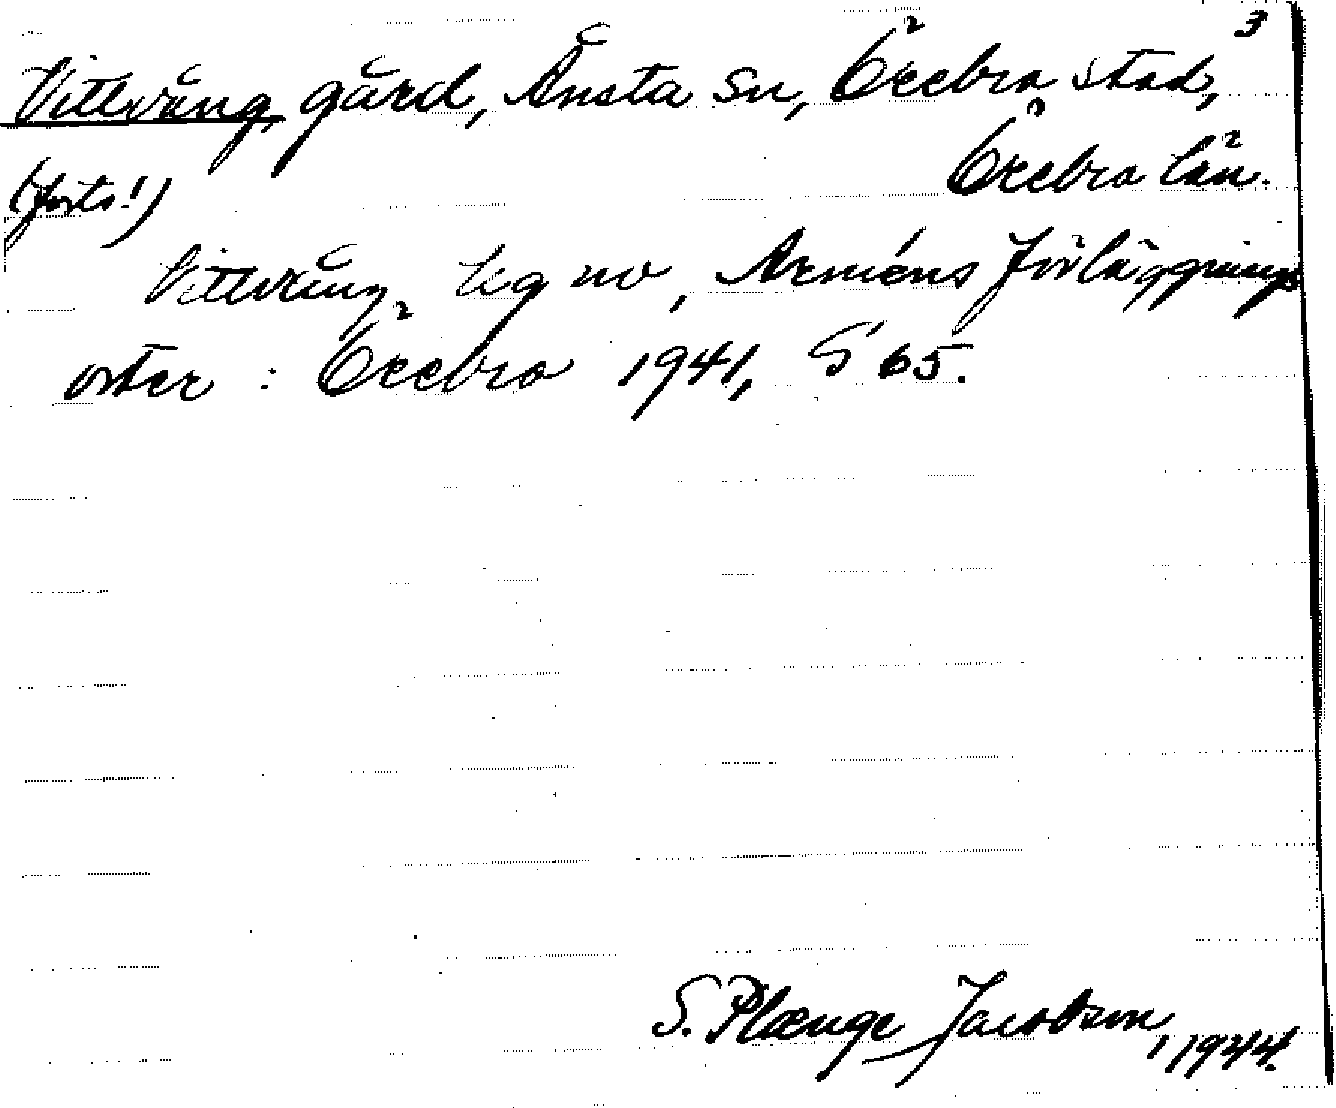 3
Vittvång, gård, Ånsta sn, Örebro stad,
Örebro län.
(forts!)
Vittvång, lgg no, Arméns förläggnings
orter: Örebro 1941, S 65.
S. Plænge Jacobson, 1944.